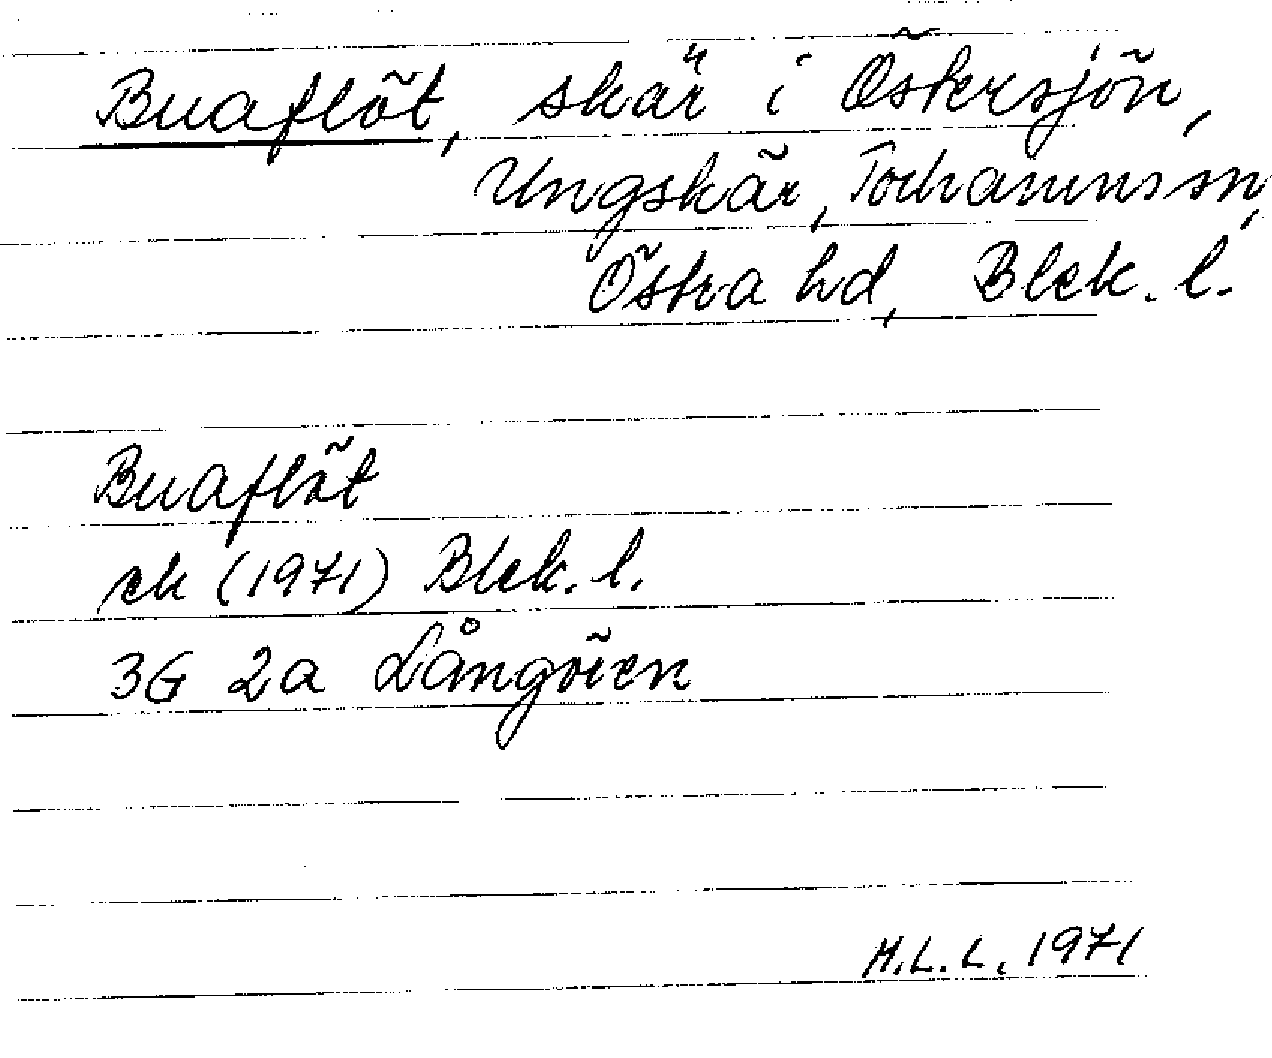 Buaflöt, skär i Östersjön,
Ungskär, Torhamns sn,
Östra hd, Blek. l.
Buaflöt
ek (1971) Blek. l.
3G 2a Långören
M.L.L. 1971